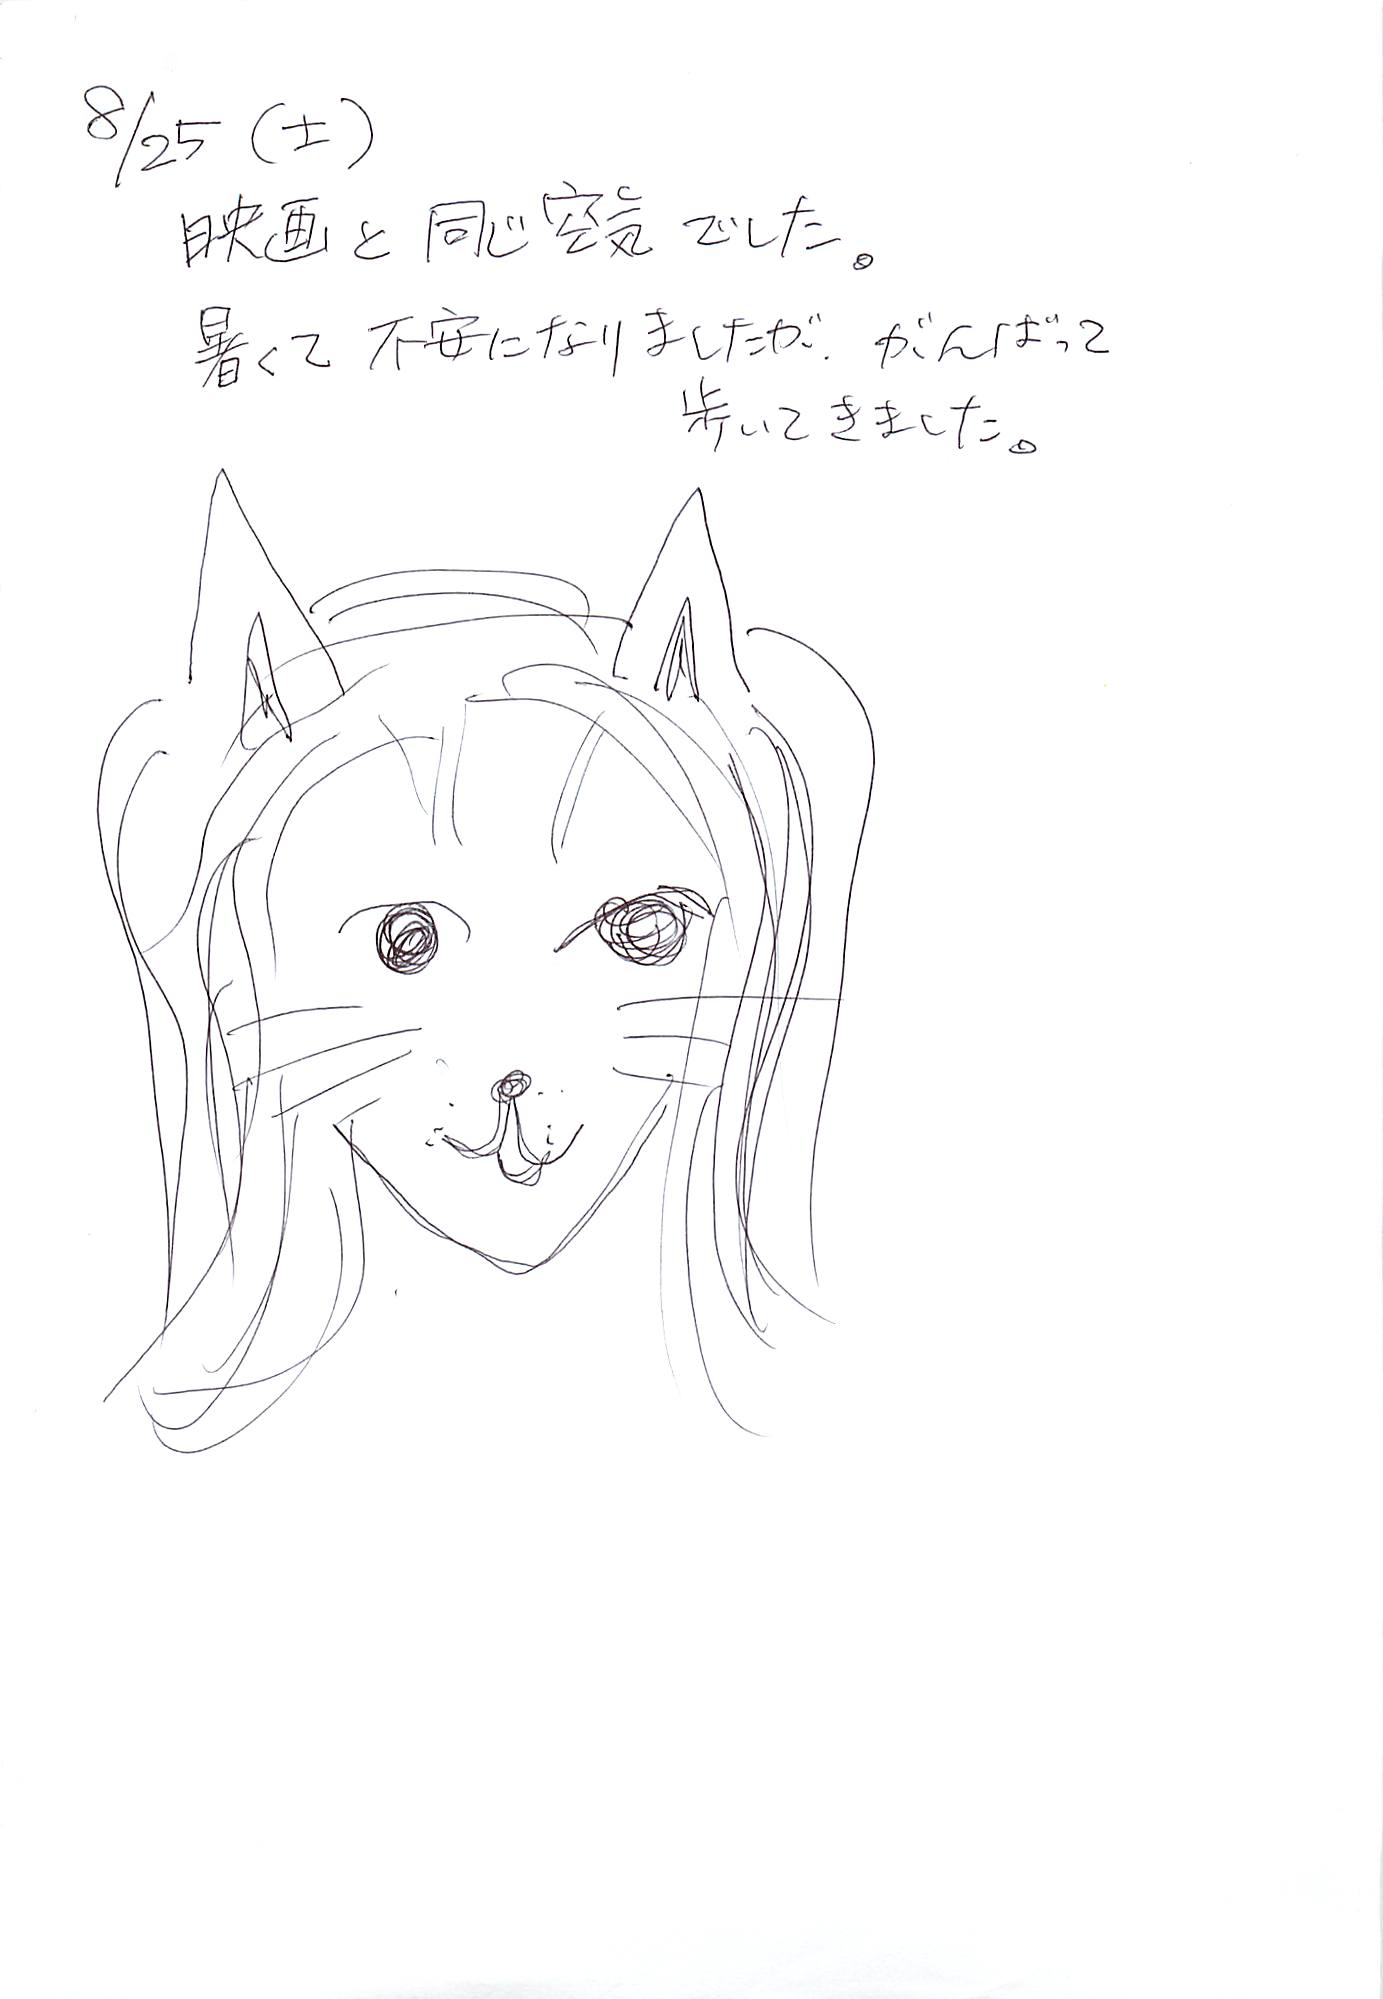 8/25(土)
映画と同じ空気でした。
暑くて不安になりましたが、がんばって
歩いてきました。